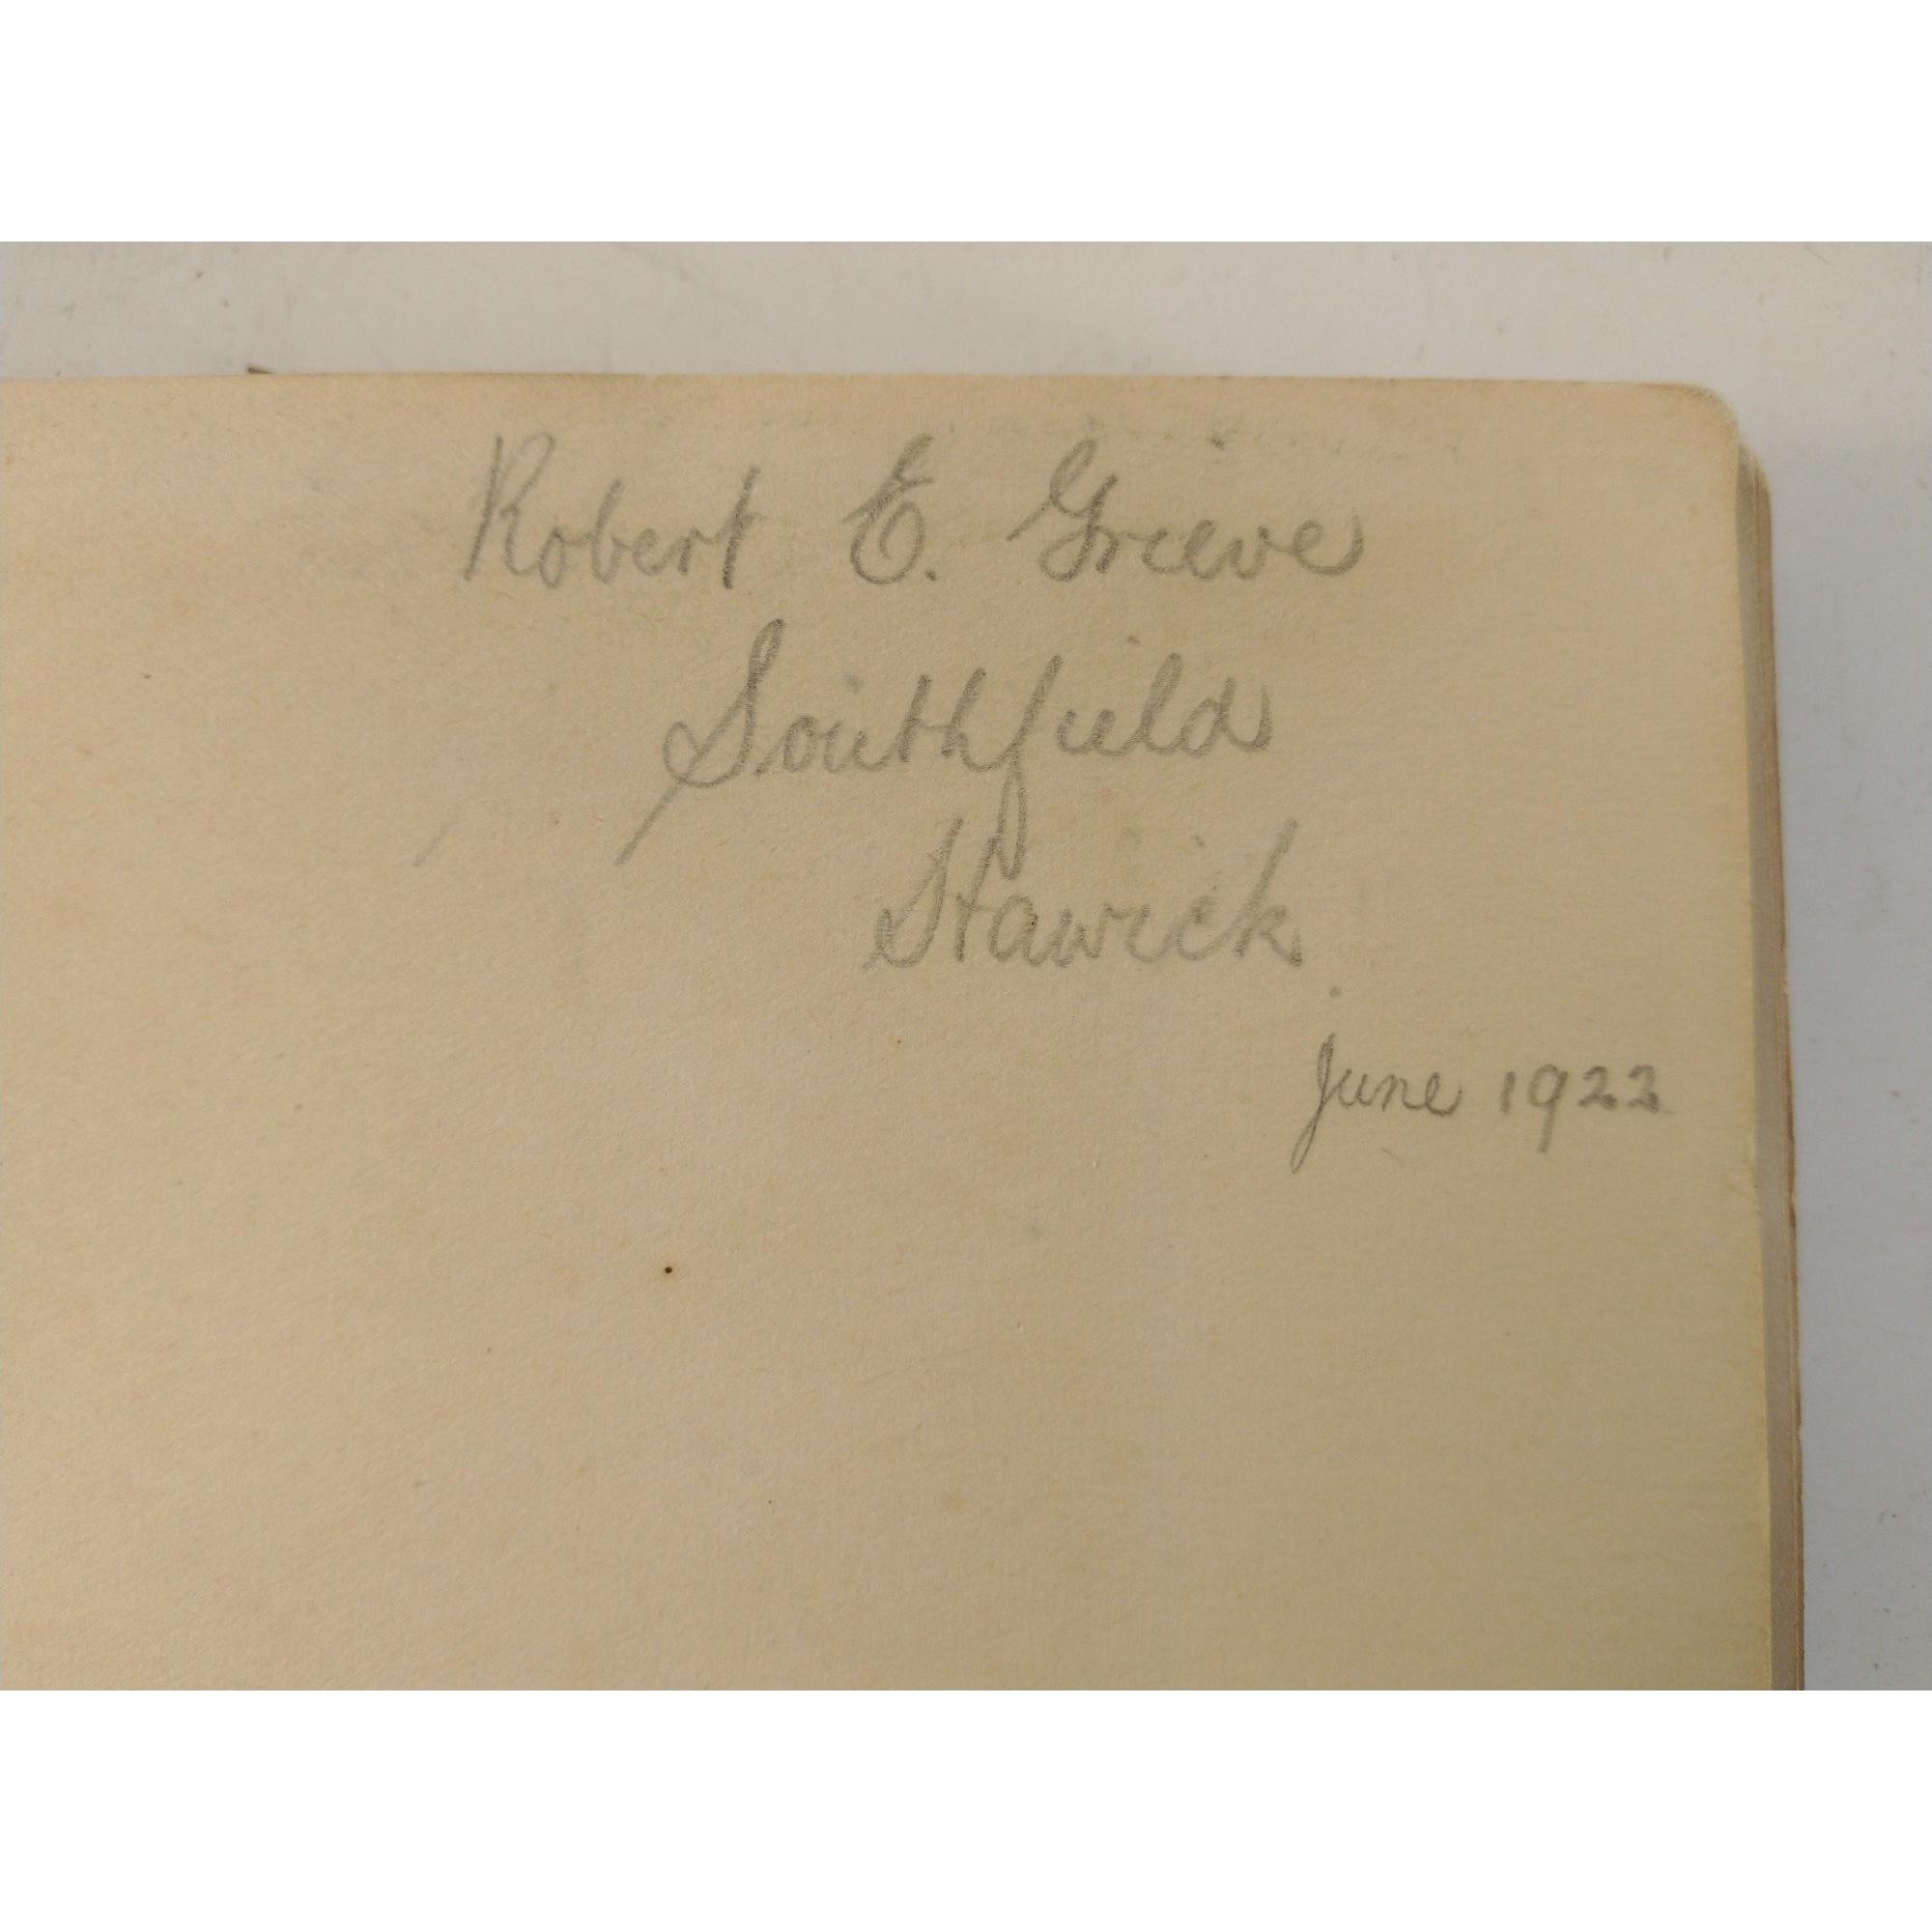 Robert E. Grieve
Southfield
Hawick
June 1922